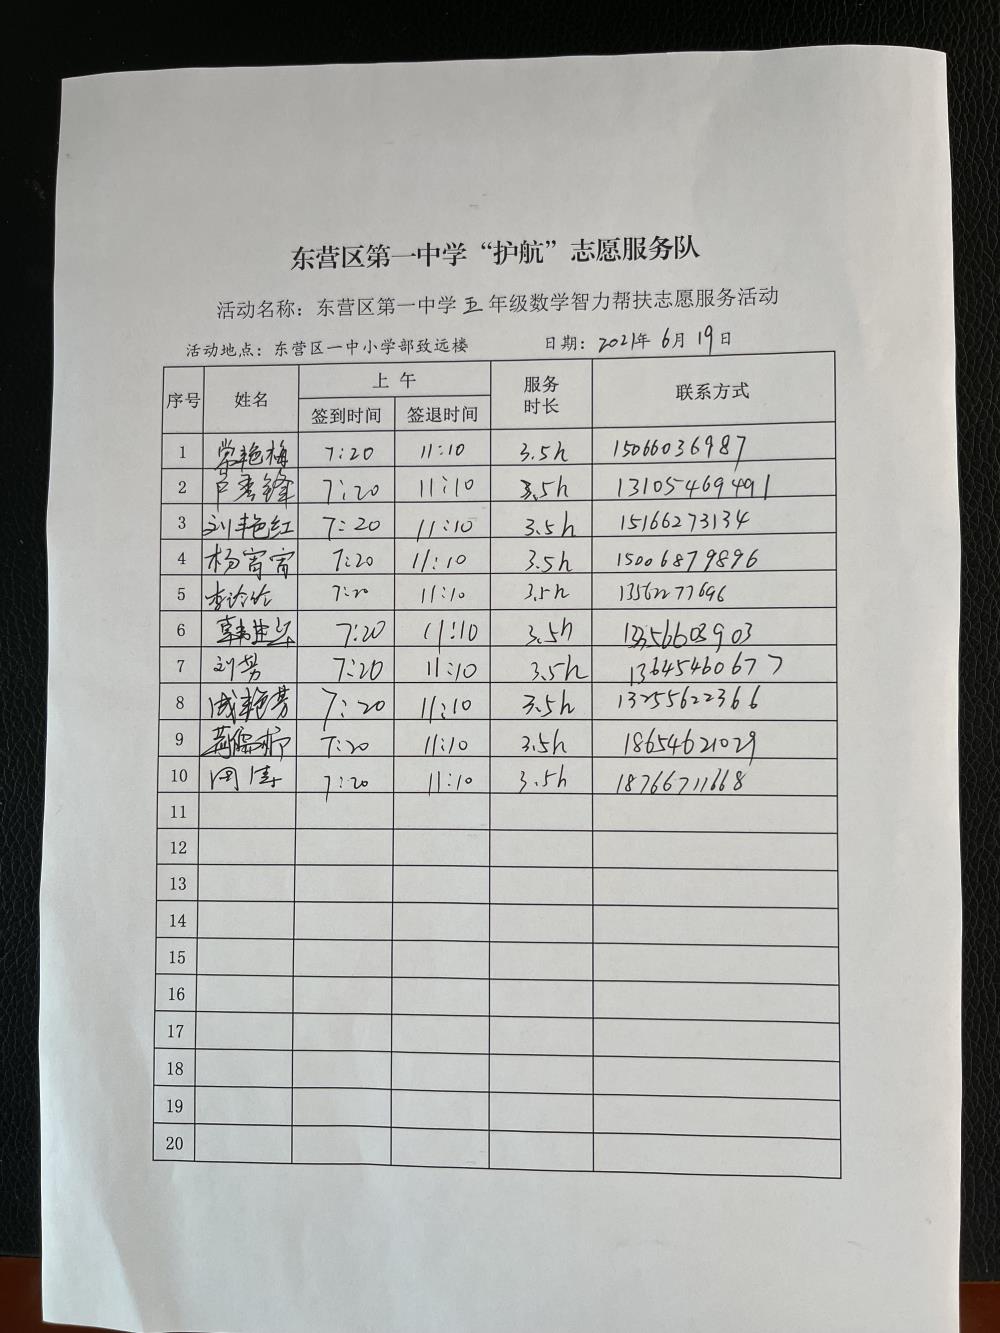 东营区第一中学“护航”志愿服务队
活动名称：东营区第一中学五年级数学智力帮扶志愿服务活动
活动地点：东营区一中小学部致远楼 日期：2021年6月19日
序号 姓名 上午 服务时长 联系方式
签到时间 签退时间
1 常艳梅 7:20 11:10 3.5h 15066036987
2 卢秀锋 7:20 11:10 3.5h 13105469491
3 刘艳红 7:20 11:10 3.5h 15166273134
4 杨宵宵 7:20 11:10 3.5h 15006879896
5 李玲玲 7:20 11:10 3.5h 13562277696
6 7:20 11:10 3.5h
7 刘芳 7:20 11:10 3.5h 13645460677
8 成艳芳 7:20 11:10 3.5h 13255622366
9 7:20 11:10 3.5h 18654621029
10 周涛 7:20 11:10 3.5h 18766711668
11
12
13
14
15
16
17
18
19
20